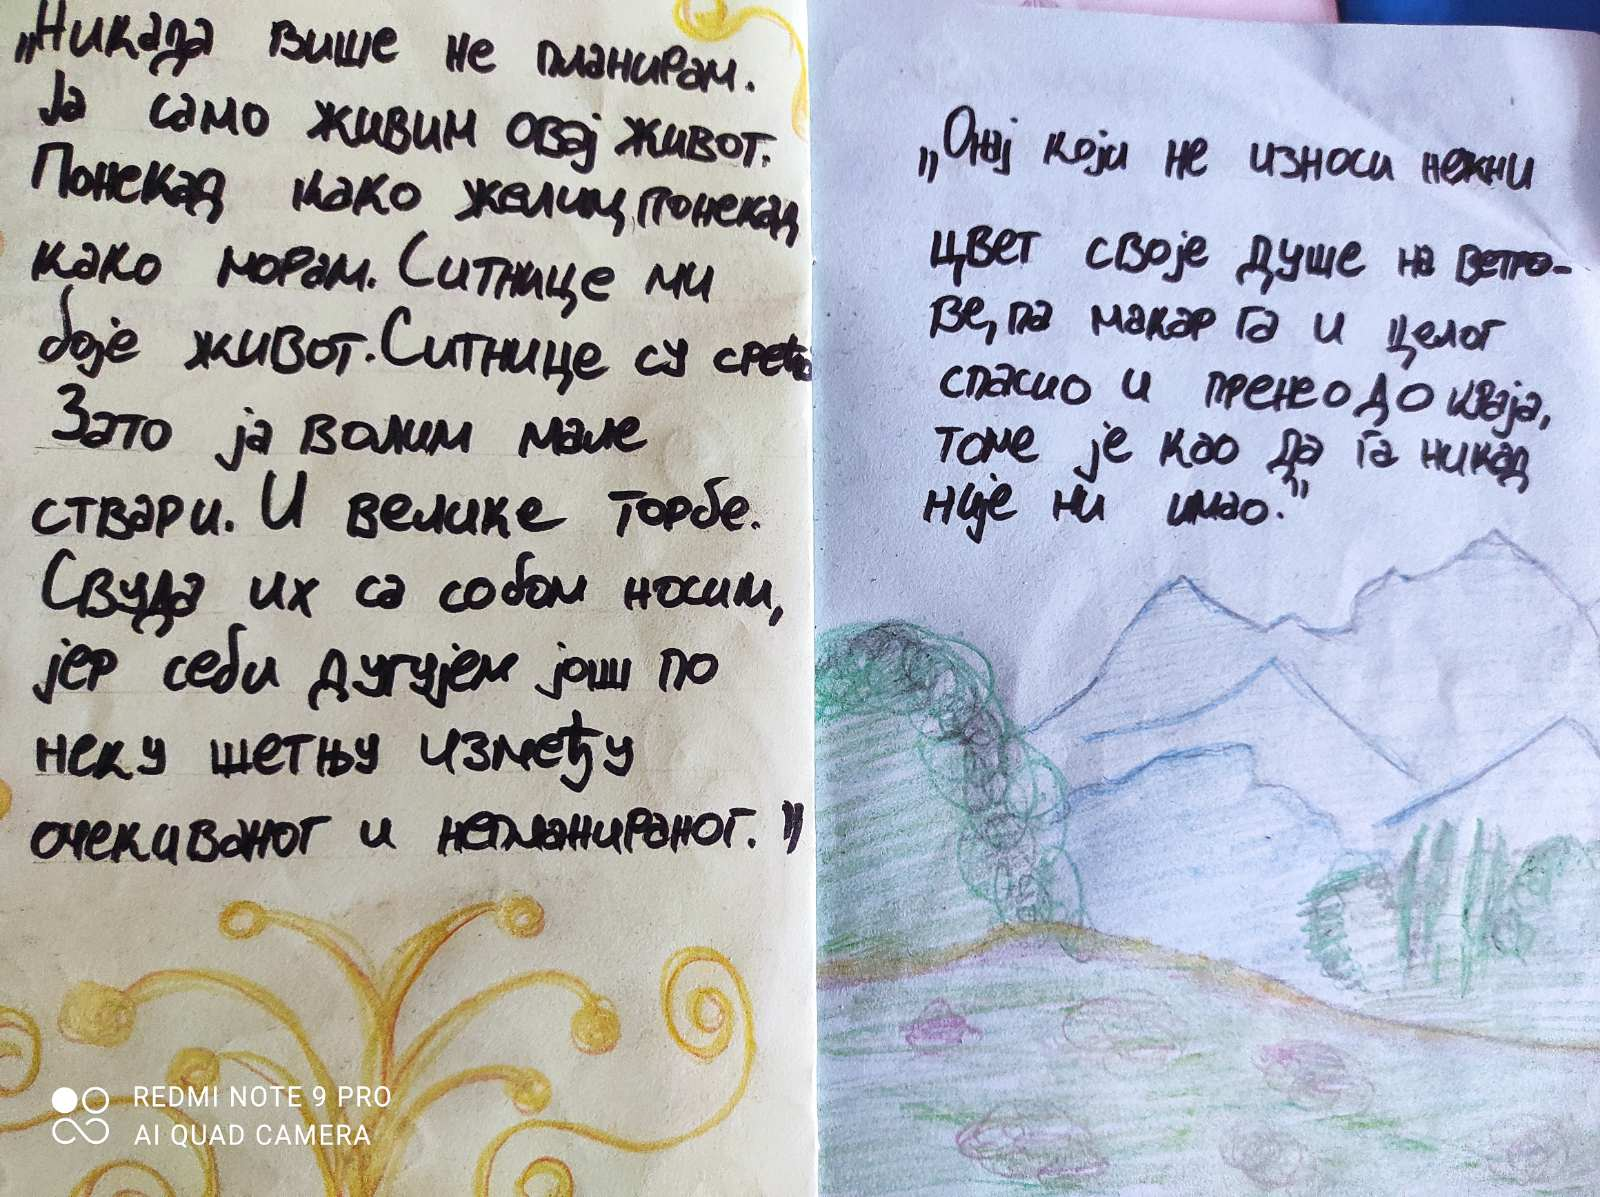 „Никада више не планирам.
Ја само живим овај живот.
Понекад како желим, понекад
како морам. Ситнице ми
боје живот. Ситнице су срећа
Зато ја волим мале
ствари. И велике торбе.
Свуда их са собом носим,
јер себи дугујем још по
неку шетњу између
очекиваног и непланираног."
„Онај који не износи нежни
цвет своје душе на ветро-
ве, па макар га и целог
спасио и пренео до краја,
томе је као да га никад
није ни имао."
REDMI NOTE 9 PRO
AI QUAD CAMERA